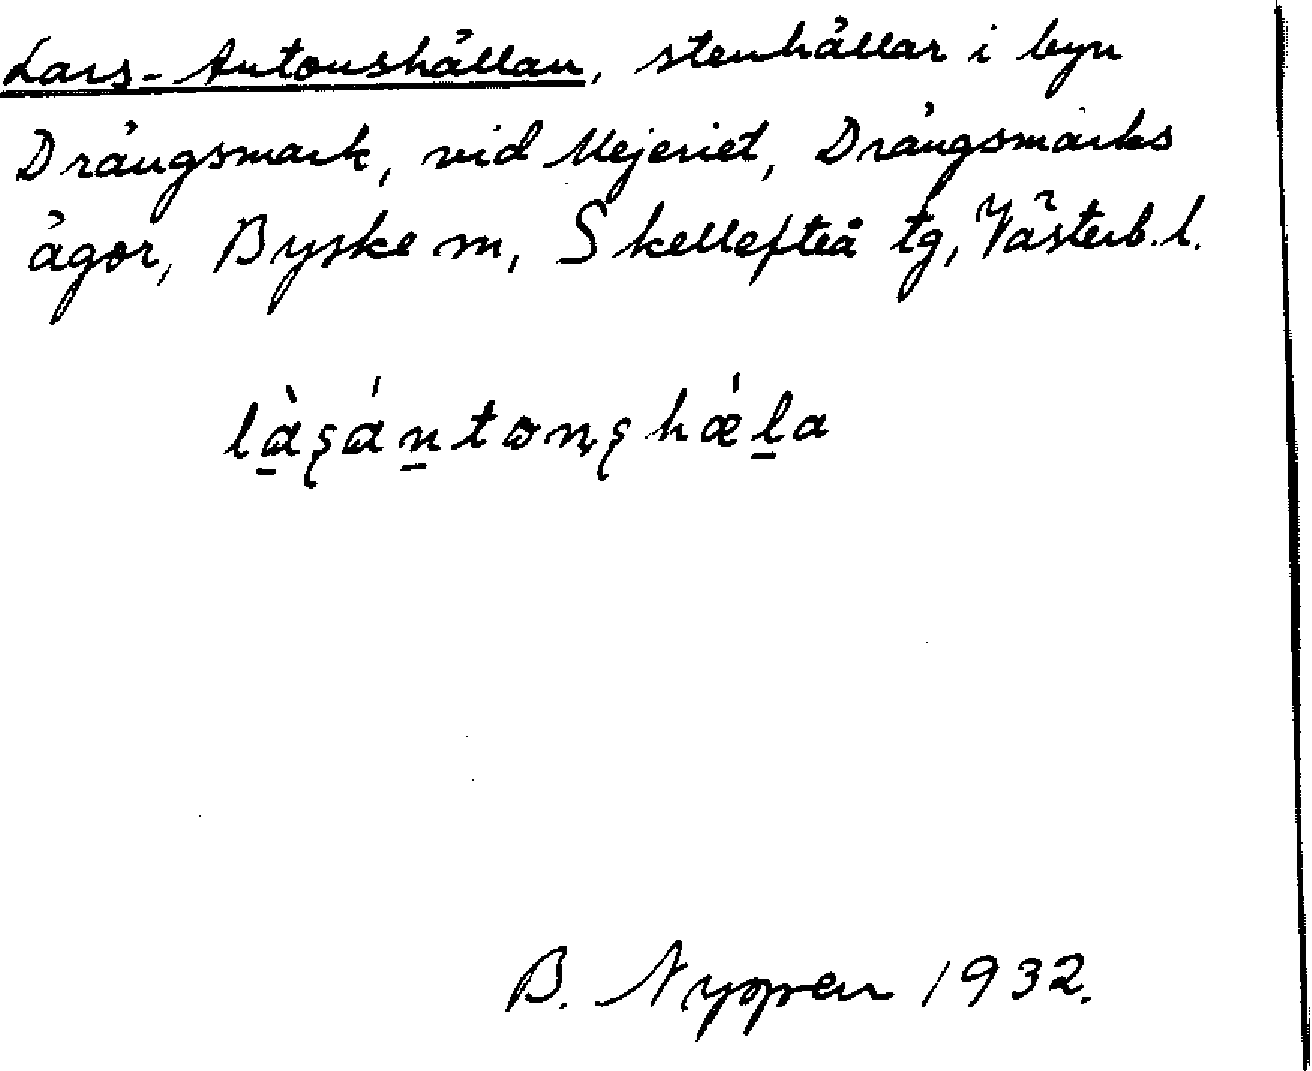 Lars-Antonshällan, stenhällar i byn
Drängsmark, vid Mejeriet, Drängsmarks
ägor, Byske sn, Skellefteå tg, Västerb. l.
là̱ʂáṉtɷɳʂhǽḻa
B. Nyppen 1932.